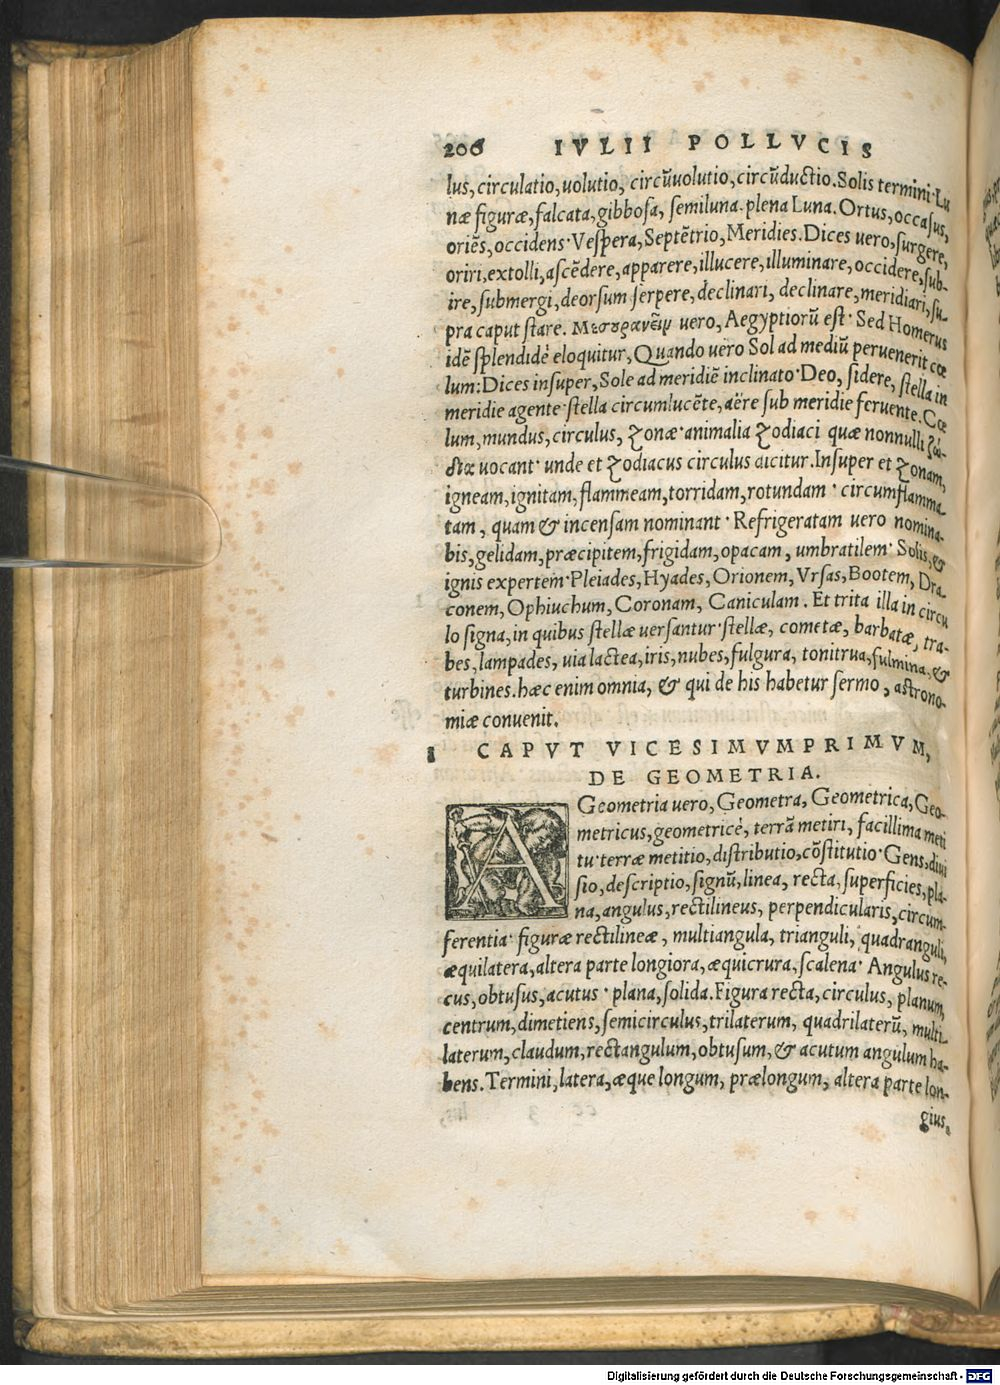 206 IVLII POLLVCIS
lus, circulatio, uolutio, circũuolutio, circũductio. Solis termini. Lu
næ figuræ, falcata, gibbosa, semiluna. plena Luna. Ortus, occasus,
oriẽs, occidens. Vespera, Septẽtrio, Meridies. Dices uero, surgere,
oriri, extolli, ascẽdere, apparere, illucere, illuminare, occidere, sub-
ire, submergi, deorsum serpere, declinari, declinare, meridiari, su-
pra caput stare. Μεσουρανεῖν uero, Aegyptiorũ est. Sed Homerus
idẽ splendidè eloquitur, Quando uero Sol ad mediũ peruenerit cœ
lum: Dices insuper, Sole ad meridiẽ inclinato. Deo, sidere, stella in
meridie agente. stella circumlucẽte, aëre sub meridie feruente. Cœ
lum, mundus, circulus, zonæ. animalia zodiaci quæ nonnulli ζώ-
δια uocant. unde et zodiacus circulus dicitur. Insuper et zonam,
igneam, ignitam, flammeam, torridam, rotundam. circumflamma-
tam, quam & incensam nominant. Refrigeratam uero nomina-
bis, gelidam, præcipitem, frigidam, opacam, umbratilem. Solis, &
ignis expertem. Pleiades, Hyades, Orionem, Vrsas, Bootem, Dra-
conem, Ophiuchum, Coronam, Caniculam. Et trita illa in circu
lo signa, in quibus stellæ uersantur. stellæ, cometæ, barbatæ, tra-
bes, lampades, uia lactea, iris, nubes, fulgura, tonitrua, fulmina, &
turbines. hæc enim omnia, & qui de his habetur sermo, astrono-
miæ conuenit.
CAPVT VICESIMVMPRIMVM,
DE GEOMETRIA.
A Geometria uero, Geometra, Geometrica, Geo-
metricus, geometricè, terrã metiri, facillima meti
tu. terræ metitio, distributio, cõstitutio. Gens, diui
sio, descriptio, signũ, linea, recta, superficies, pla-
na, angulus, rectilineus, perpendicularis, circum-
ferentia. figuræ rectilineæ, multiangula, trianguli, quadranguli,
æquilatera, altera parte longiora, æquicrura, scalena. Angulus re-
cus, obtusus, acutus. plana, solida. Figura recta, circulus, planum,
centrum, dimetiens, semicirculus, trilaterum, quadrilaterũ, multi-
laterum, claudum, rectangulum, obtusum, & acutum angulum ha-
bens. Termini, latera, æque longum, prælongum, altera parte lon-
gius,
Digitalisierung gefördert durch die Deutsche Forschungsgemeinschaft - DFG